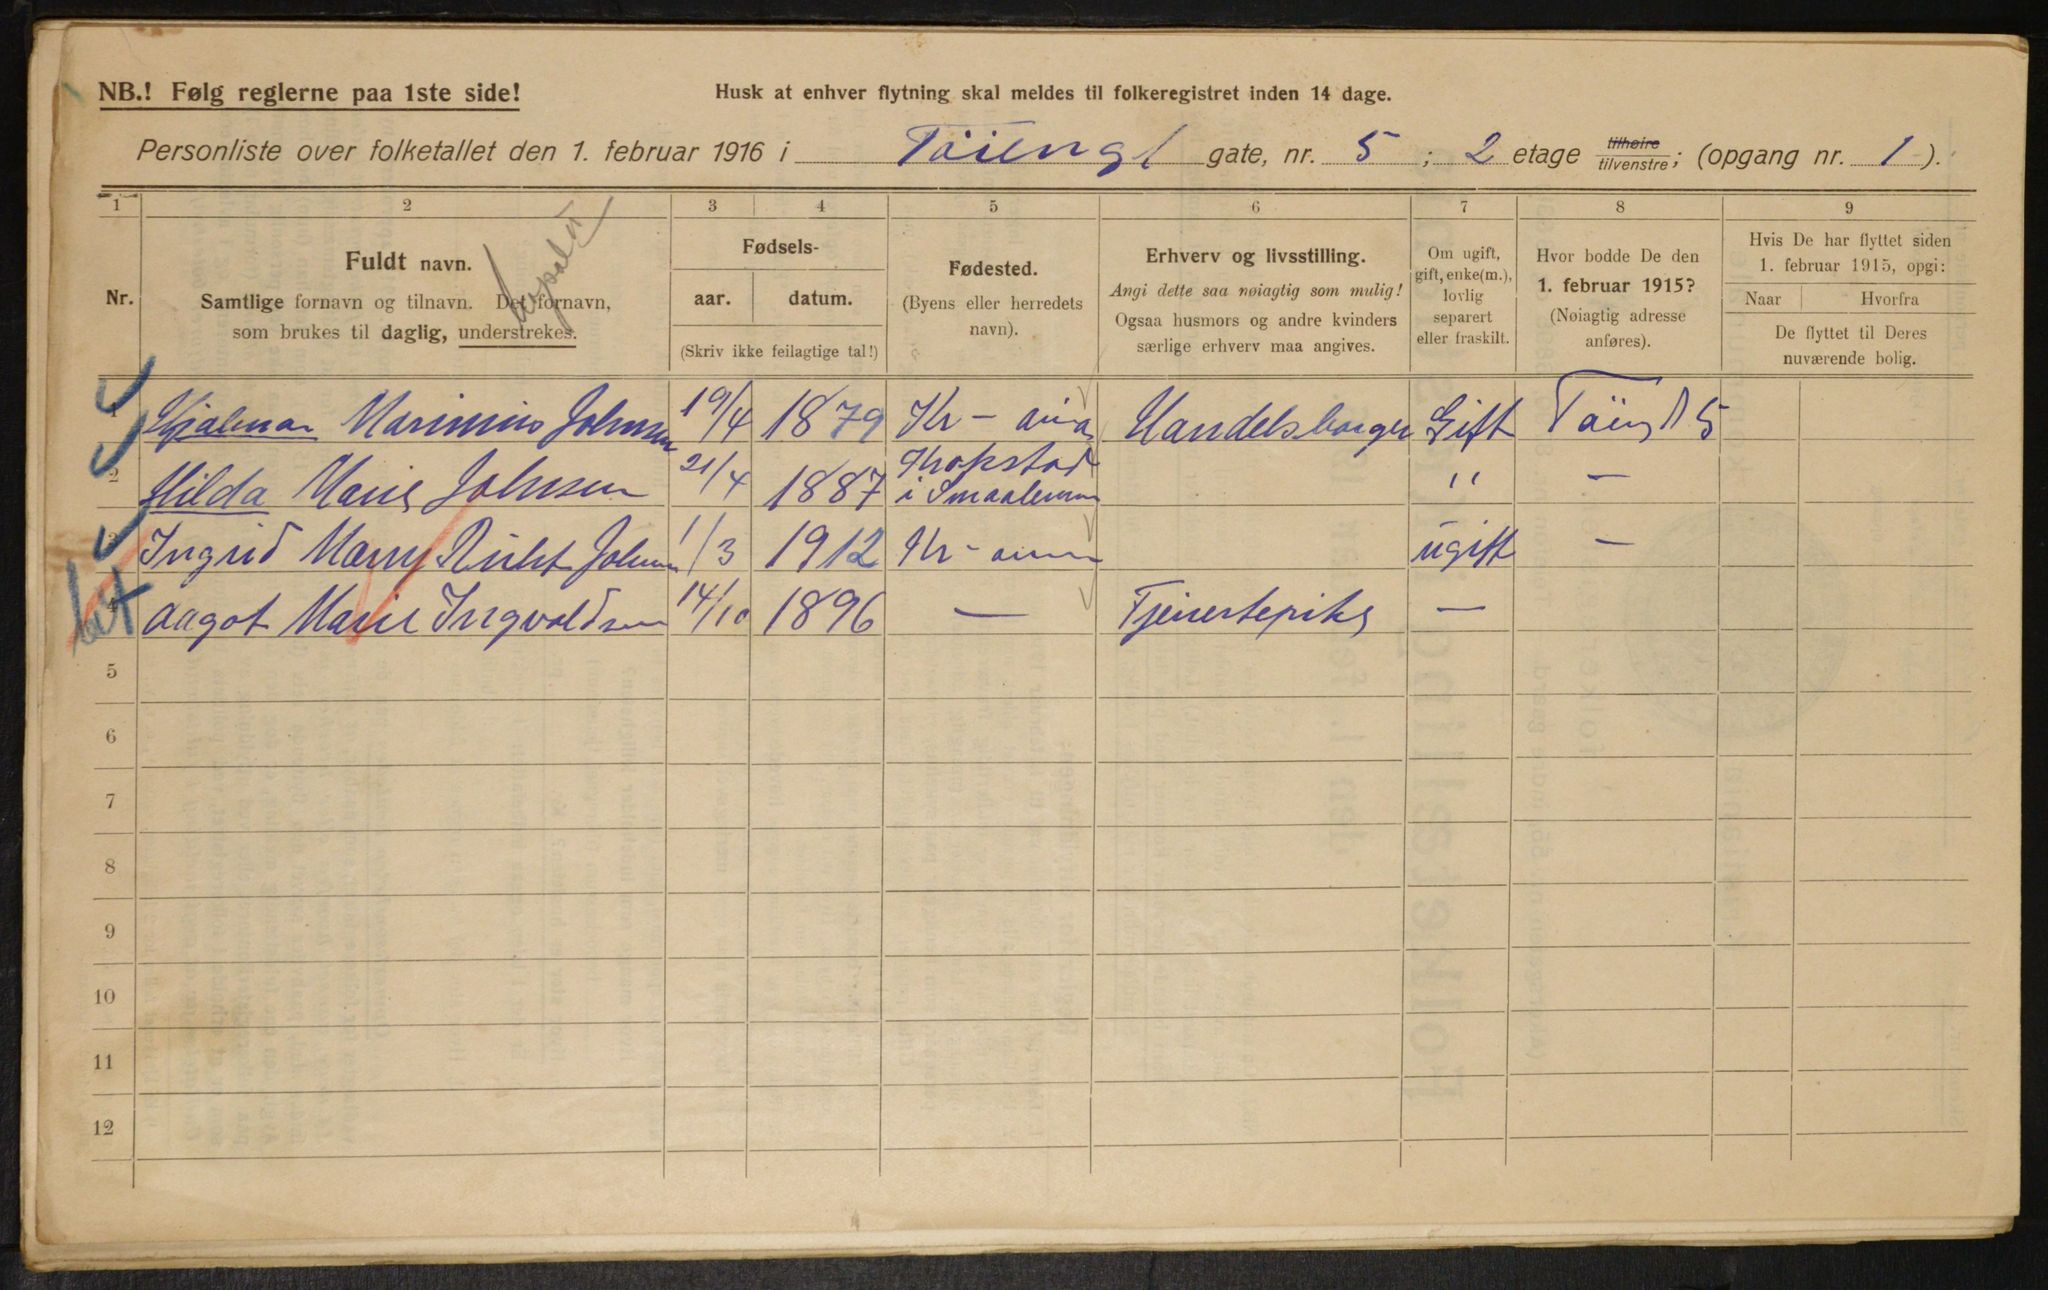 NB.! Følg reglerne paa 1ste side!
Husk at enhver flytning skal meldes til folkeregistret inden 14 dage.
Personliste over folketallet den 1. februar 1916 i Töieng gate, nr. 5 ; 2 etage tilhøire tilvenstre; (opgang nr. 1 ).
1 2 3 4 5 6 7 8 9
Nr.
Fuldt navn.
Samtlige fornavn og tilnavn. Det fornavn,
som brukes til daglig, understrekes.
Fødsels-
aar. datum.
(Skriv ikke feilagtige tal!)
Fødested.
(Byens eller herredets
navn).
Erhverv og livsstilling.
Angi dette saa nøiagtig som mulig!
Ogsaa husmors og andre kvinders
særlige erhverv maa angives.
Om ugift,
gift, enke(m.),
lovlig
separert
eller fraskilt.
Hvor bodde De den
1. februar 1915?
(Nøiagtig adresse
anføres).
Hvis De har flyttet siden
1. februar 1915, opgi:
Naar Hvorfra
De flyttet til Deres
nuværende bolig.
1 Hjalmar Marinius Johnsen 19/4 1879 Kr-ania Handelsborger Gift Töieng 5
2 Hilda Marie Johnsen 21/4 1887 i Smaalenene " —
3 Ingrid Marry Johnsen 1/3 1912 Kr-ania ugift —
4 Aagot Marie Ingvaldsen 14/10 1896 — Tjenestepike —
5
6
7
8
9
10
11
12